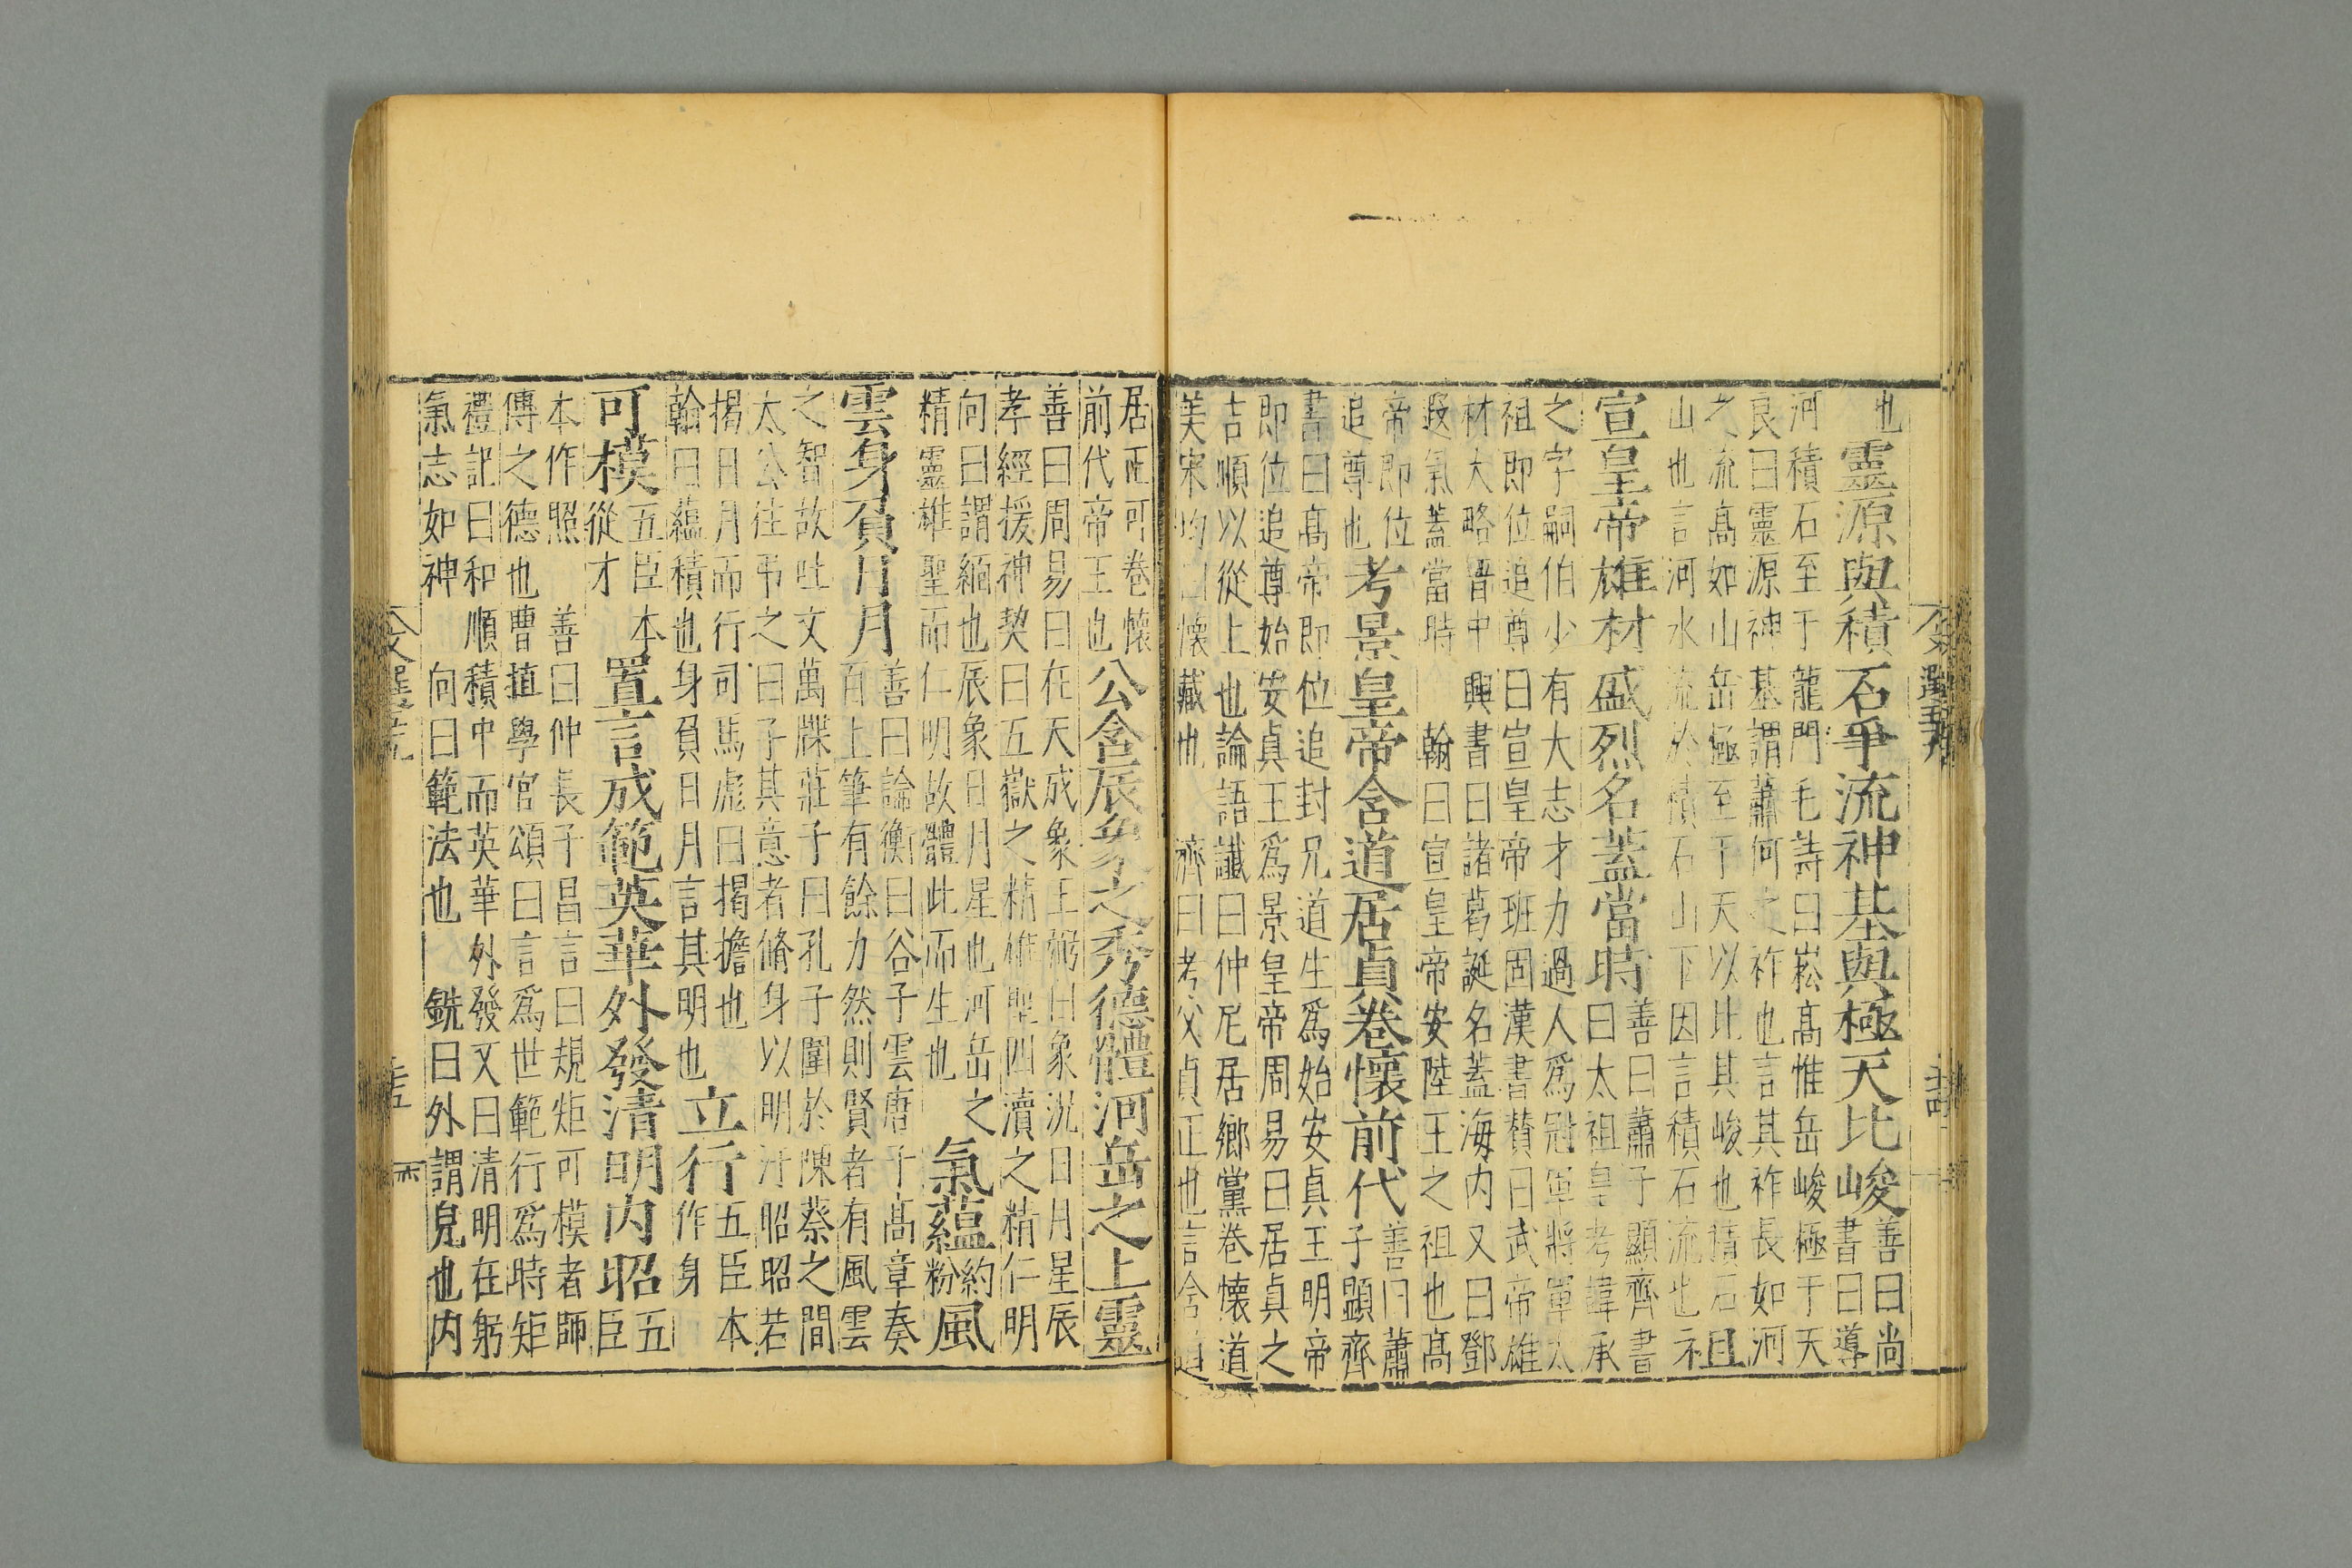 也靈源與積石爭流神基與極天比峻
善曰尚
書曰導
河積石至于龍門毛詩曰崧高惟岳峻極于天
良曰靈源神基謂蕭何之祚也言其祚長如河
之流高如山岳極至于天以比其峻也積石且
山也言河水流於積石山下因言積石流也
宣皇帝雄材盛烈名蓋當時
善曰蕭子顯齊書
曰太祖皇考諱承
之字嗣伯少有大志才力過人爲冠軍將軍太
祖即位追尊曰宣皇帝班固漢書贊曰武帝雄
材大略晉中興書曰諸葛誕名蓋海内又曰鄧
遐氣蓋當時 翰曰宣皇帝安陸王之祖也高
帝即位
追尊也
考景皇帝含道居貞卷懷前代
善曰蕭
子顯齊
書曰高帝即位追封兄道生爲始安貞王明帝
即位追尊始安貞王爲景皇帝周易曰居貞之
吉順以從上也論語讖曰仲尼居鄉黨卷懷道
美宋均曰懷藏也 濟曰考父貞正也言含道
居正可卷懷
前代帝王也
公含辰象之秀德體河岳之上靈
善曰周易曰在天成象王弼曰象況日月星辰
孝經援神契曰五嶽之精雄聖四瀆之精仁明
向曰謂緬也辰象日月星也河岳之
精靈雄聖而仁明故體此而生也
氣蘊約粉風
雲身負日月
善曰論衡曰谷子雲唐子高章奏
百上筆有餘力然則賢者有風雲
之智故吐文萬牒莊子曰孔子圍於陳蔡之間
太公往弔之曰子其意者脩身以明汙昭昭若
揭日月而行司馬彪曰揭擔也
翰曰蘊積也身負日月言其明也
立行
五臣本
作身
可模
五臣本
從才
置言成範英華外發清明内昭
五
臣
本作照 善曰仲長子昌言曰規矩可模者師
傅之德也曹植學官頌曰言爲世範行爲時矩
禮記曰和順積中而英華外發又曰清明在躬
氣志如神 向曰範法也 銑曰外謂皃也内